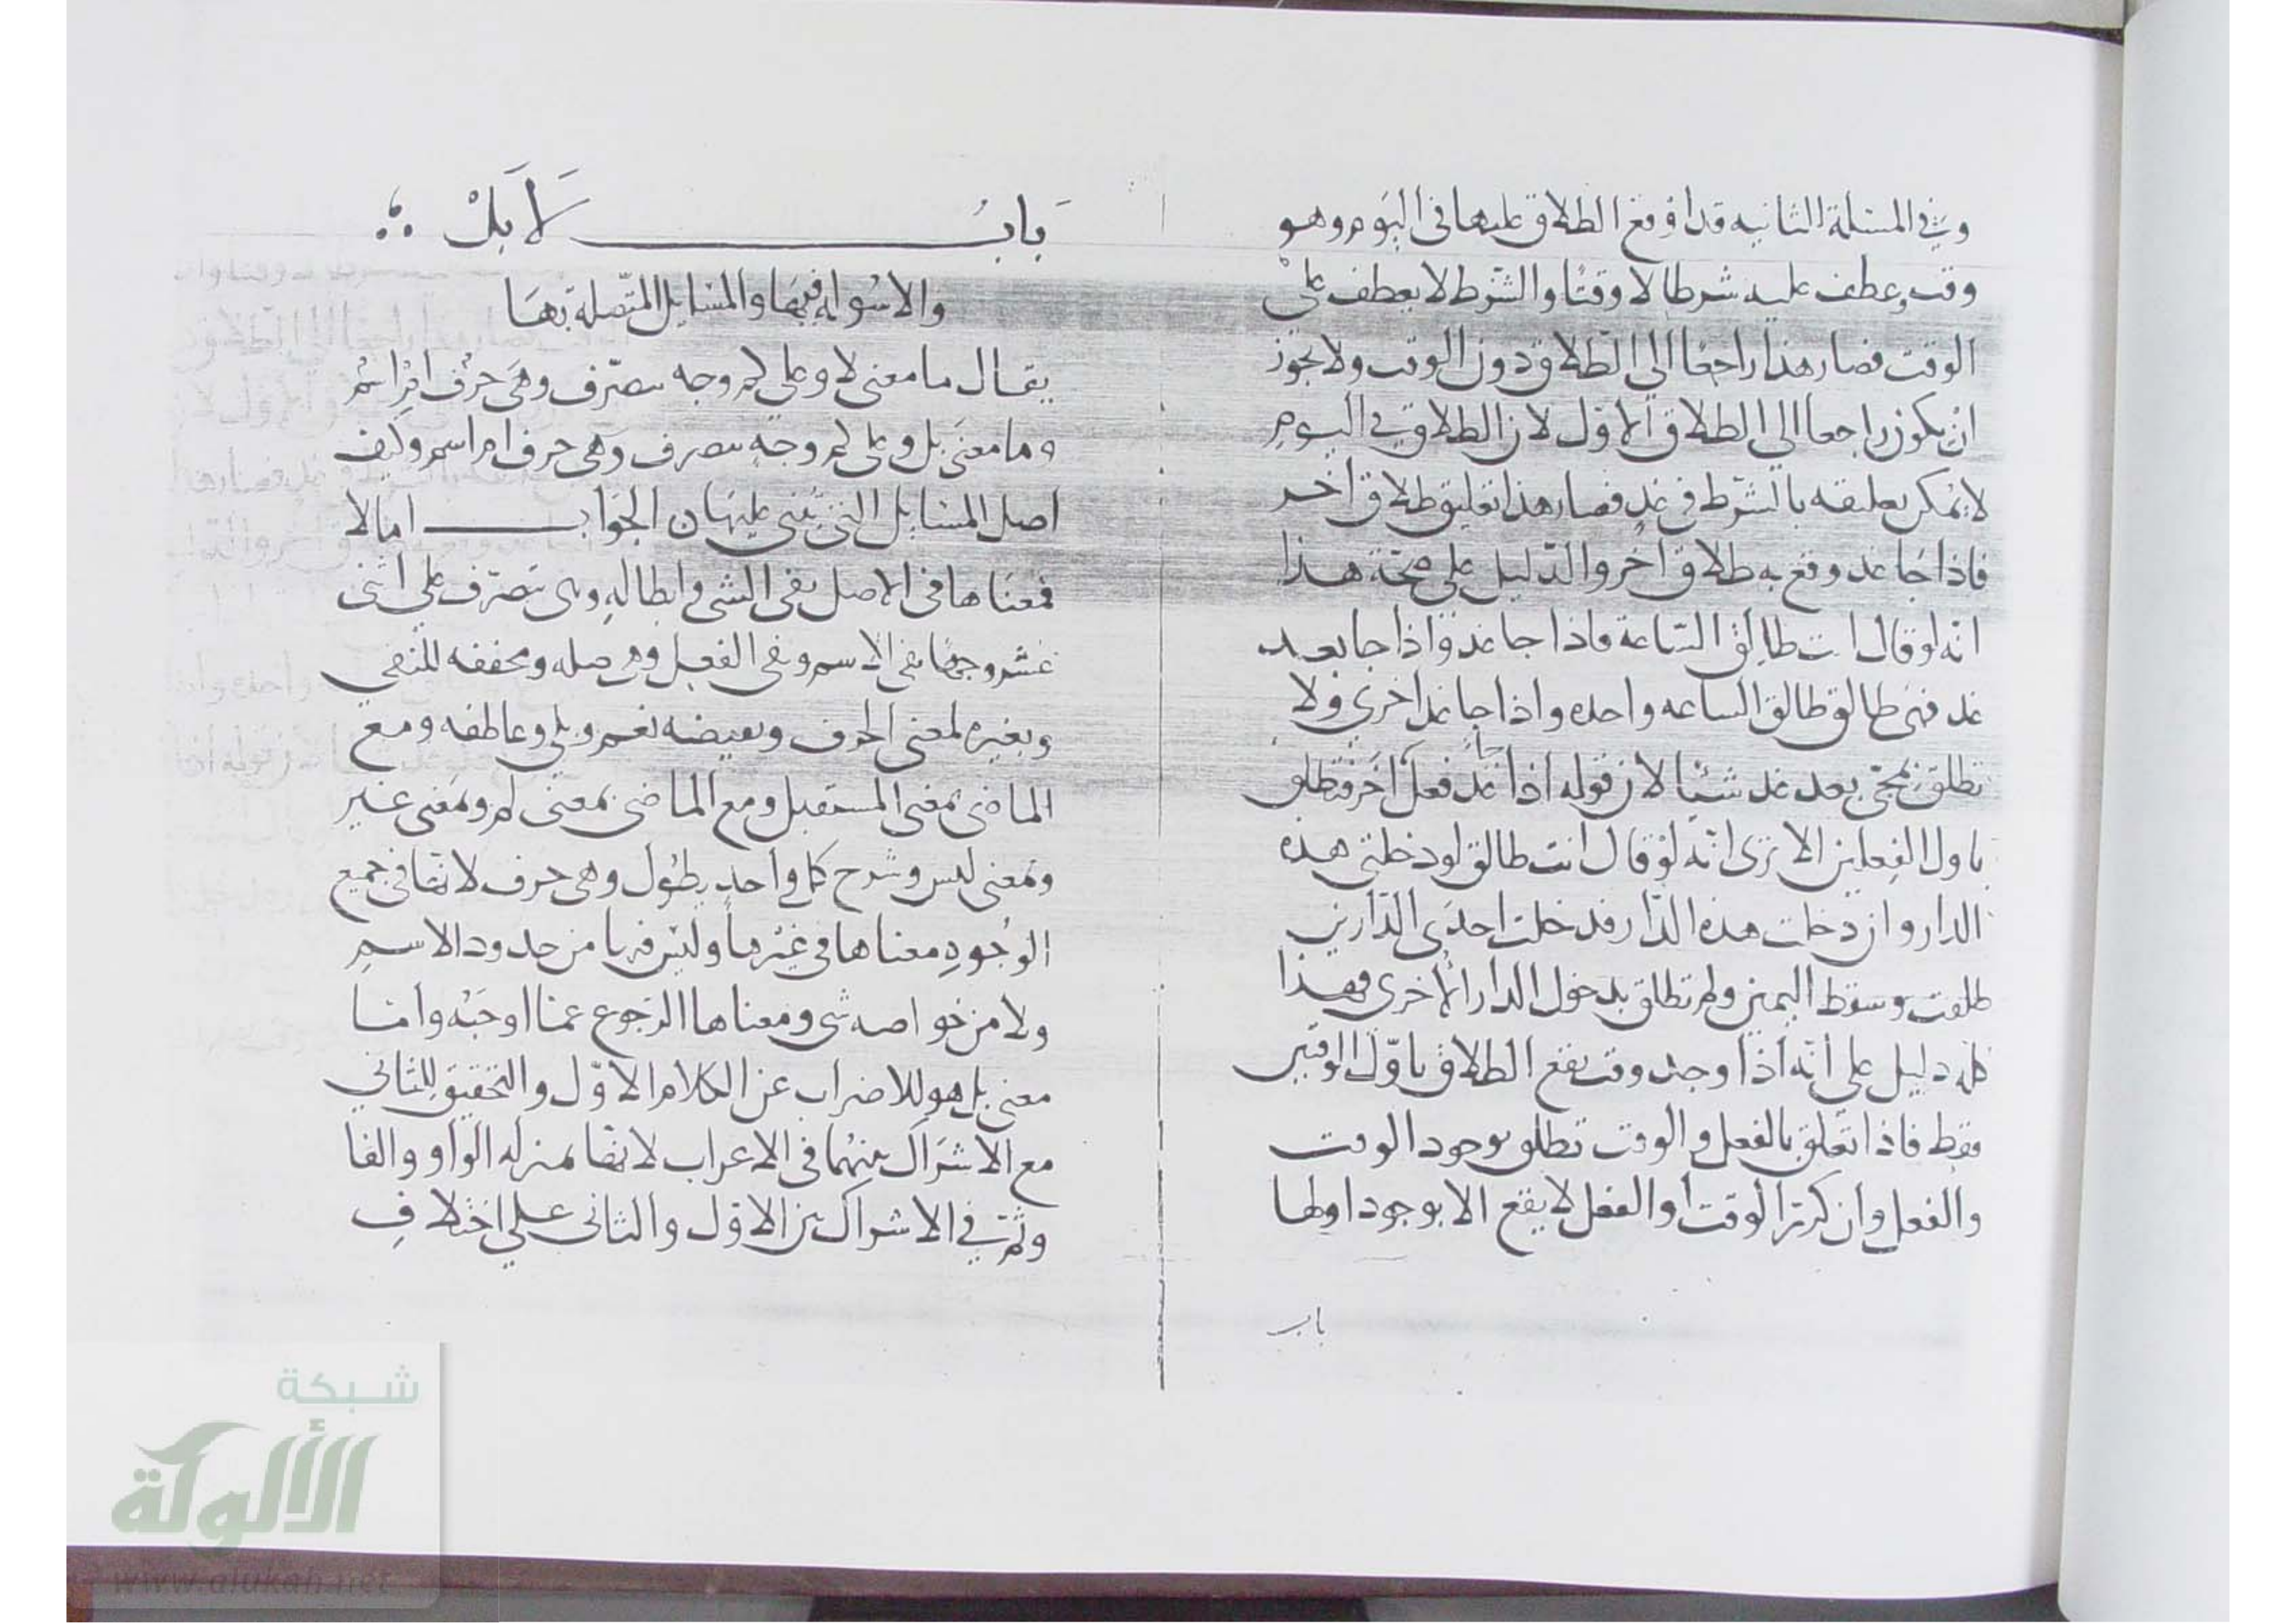 وفي المسئلة الثانيه قد اوقع الطلاق عليها في اليوم وهو
وقت وعطف عليه شرطا لا وقتا والشرط لا يعطف على
الوقت فصار هذا راجعا الي الطلاق دون الوقت ولا يجوز
ان يكون راجعا الي الطلاق الاول لان الطلاق في اليوم
لا يمكن تعليقه بالشرط في غد فصار هذا تعليق طلاق اخر
فاذا جا غد وقع به طلاق اخر والدليل على صحة هذا
انه لو قال انت طالق الساعة فاذا جا غد واذا جا بعد
غد فهى طالق طالق الساعه واحده واذا جا غد اخرى ولا
تطلق بمجى بعد غد شيئا لان قوله اذا جا غد فعل اخر فتطلق
باول الفعلين الا ترى انه لو قال انت طالق لو دخلتي هذه
الدار وان دخلت هذه الدار فدخلت احدى الدارين
طلقت وسقط اليمين ولم تطلق بدخول الدار الاخرى فهذا
كله دليل على انه اذا وجد وقت يقع الطلاق باول الوقتين
فقط فاذا تعلق بالفعل والوقت تطلق بوجود الوقت
والفعل وان كرر الوقت او الفعل لا يقع الا بوجود اولها
باب
بَابُ لَا بَلْ
والاسوله فيها والمسايل المتصلة بها
يقال ما معنى لا وعلى كم وجه تتصرف وهى حرف ام اسم
وما معنى بل وعلى كم وجه تتصرف وهى حرف ام اسم وكيف
اصل المسايل التي تبني عليهما ن الجواب اما لا
فمعناها في الاصل نفى الشي وابطاله وهى تتصرف علي اثنى
عشر وجها نفى الاسم ونفى الفعل وهى صله ومحققه للنفي
وبغيره لمعنى الحرف ونقيضه نعم وبلي وعاطفه ومع
الماضى بمعنى المستقبل ومع الماضى بمعنى لم وبمعنى غير
وبمعنى ليس وشرح كل واحد يطول وهى حرف لانها في جميع
الوجوه معناها في غيرها وليس فيها من حدود الاسم
ولا من خواصه شي ومعناها الرجوع عما اوجبه واما
معنى بل هو للاضراب عن الكلام الاول والتحقيق للثاني
مع الاشراك بينهما في الاعراب لانها بمنزلة الواو والفا
وثم في الاشراك بين الاول والثاني على اختلاف
شبكة
الألوكة
www.alukah.net